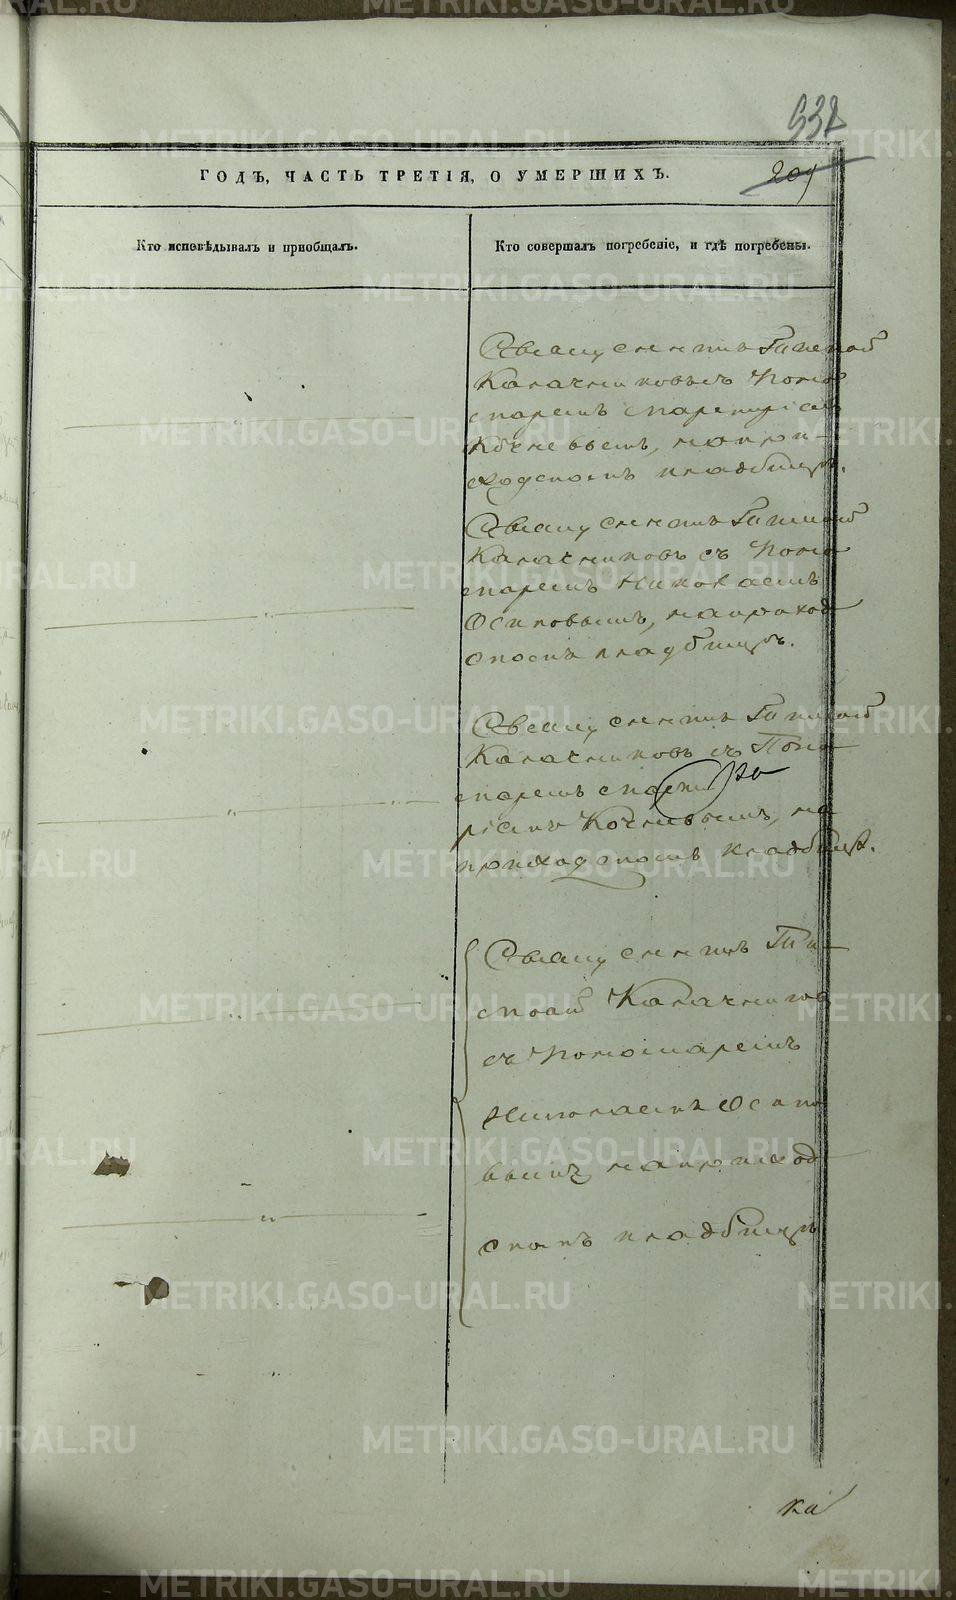 538
209
ГОДЪ, ЧАСТЬ ТРЕТІЯ, О УМЕРШИХЪ.
Кто исповѣдывалъ и пріобщалъ.
Кто совершалъ погребеніе, и гдѣ погребены.
Священникъ
Калачниковъ съ Поно
маремъ
Кочневымъ, на при
ходскомъ кладбищѣ.
Священникъ
Калачниковъ съ Поно
маремъ Николаемъ
Осиповымъ, на приход
скомъ кладбищѣ.
Священникъ
Калачниковъ съ Поно
маремъ
Кочневымъ, на
приходскомъ кладбищѣ.
Священникъ
Калачников
съ Пономаремъ
Николаемъ Осипо
вымъ на приход
скомъ кладбищѣ
METRIKI.GASO-URAL.RU